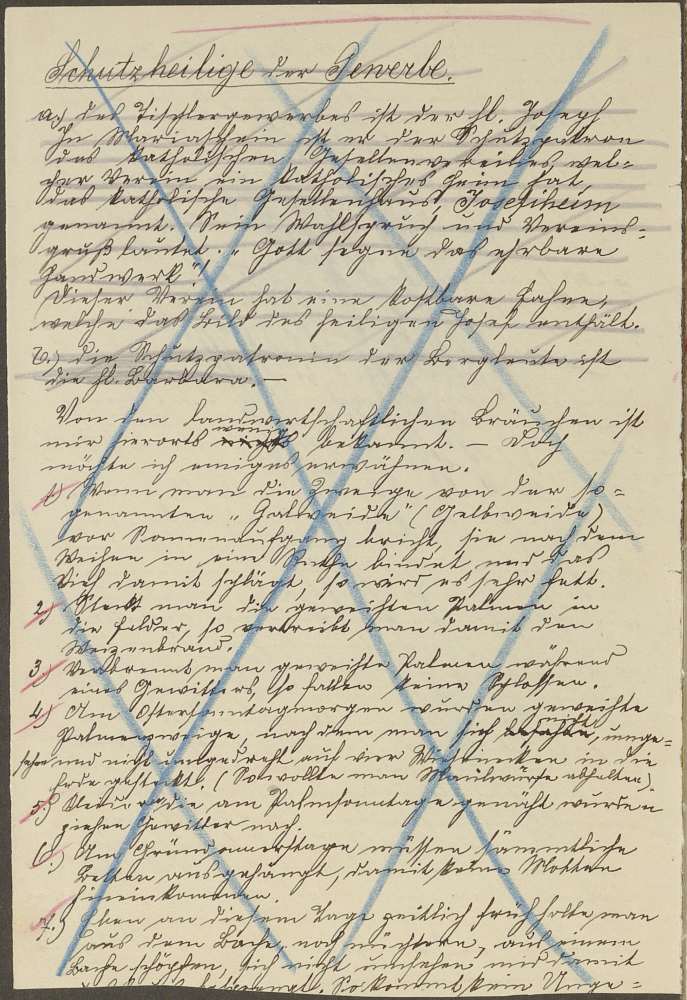 Schutzheilige der Gewerbe.
a.) des Tischlergewerbes ist der hl. Joseph
In Mariaschein ist er der Schutzpatron
des katholischen Gesellenvereines, wel-
cher Verein ein katholisches Heim hat,
das katholische Gesellenhaus, Josefiheim
genannt. Sein Wahlspruch und Vereins-
gruß lautet: „Gott segne das ehrbare
Handwerk"!
Dieser Verein hat eine kostbare Fahne,
welche das Bild des heiligen Josef enthält.
b.) die Schutzpatronin der Bergleute ist
die hl. Barbara. —
Von den landwirtschaftlichen Bräuchen ist
mir hierorts wenig bekannt. — Doch
möchte ich einiges erwähnen.
1.) Wenn man die Zweige von der so-
genannten „Galweide" (Gelbweide)
vor Sonnenaufgang bricht, sie nach dem
Weihen in eine Ruthe bindet und das
Vieh damit schlägt, so wird es sehr fett.
2.) Steckt man die geweihten Palmen in
die Felder, so vertreibt man damit den
Weizenbrand.
3.) Verbrennt man geweihte Palmen während
eines Gewitters, so fallen keine Schlossen.
4.) Am Ostersonntagmorgen wurden geweihte
Palmenzweige, nach dem man sich nicht umge-
sehen und nicht umgedreht auf vier in die
Erde gesteckt. (So wollte man Maulwürfe abhalten)
5.) Kleider, die am Palmsonntage genäht wurden
ziehen Gewitter nach.
6.) Am Gründonnerstage müssen sämmtliche
Betten ausgehängt, damit keine Motten
hineinkommen.
7.) Eben an diesem Tage zeitlich früh holte man
aus dem Bache, noch nüchtern, aus einem
Bache schöpfen, sich nicht umsehen und damit
So kommt kein Unge-